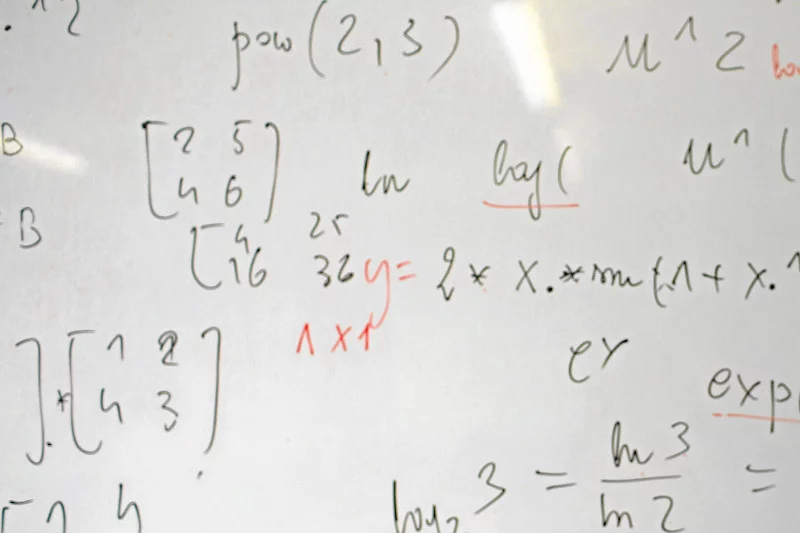 .^2
pow(2,3)
M^2
B
[2 5
4 6]
ln
log(
M^(
B
[4 25
16 36
y= 2* x.*sin(1+x.^
1x1
].*[1 2
4 3]
ex
exp(
log₂3 = ln3/ln2 =
[1 4